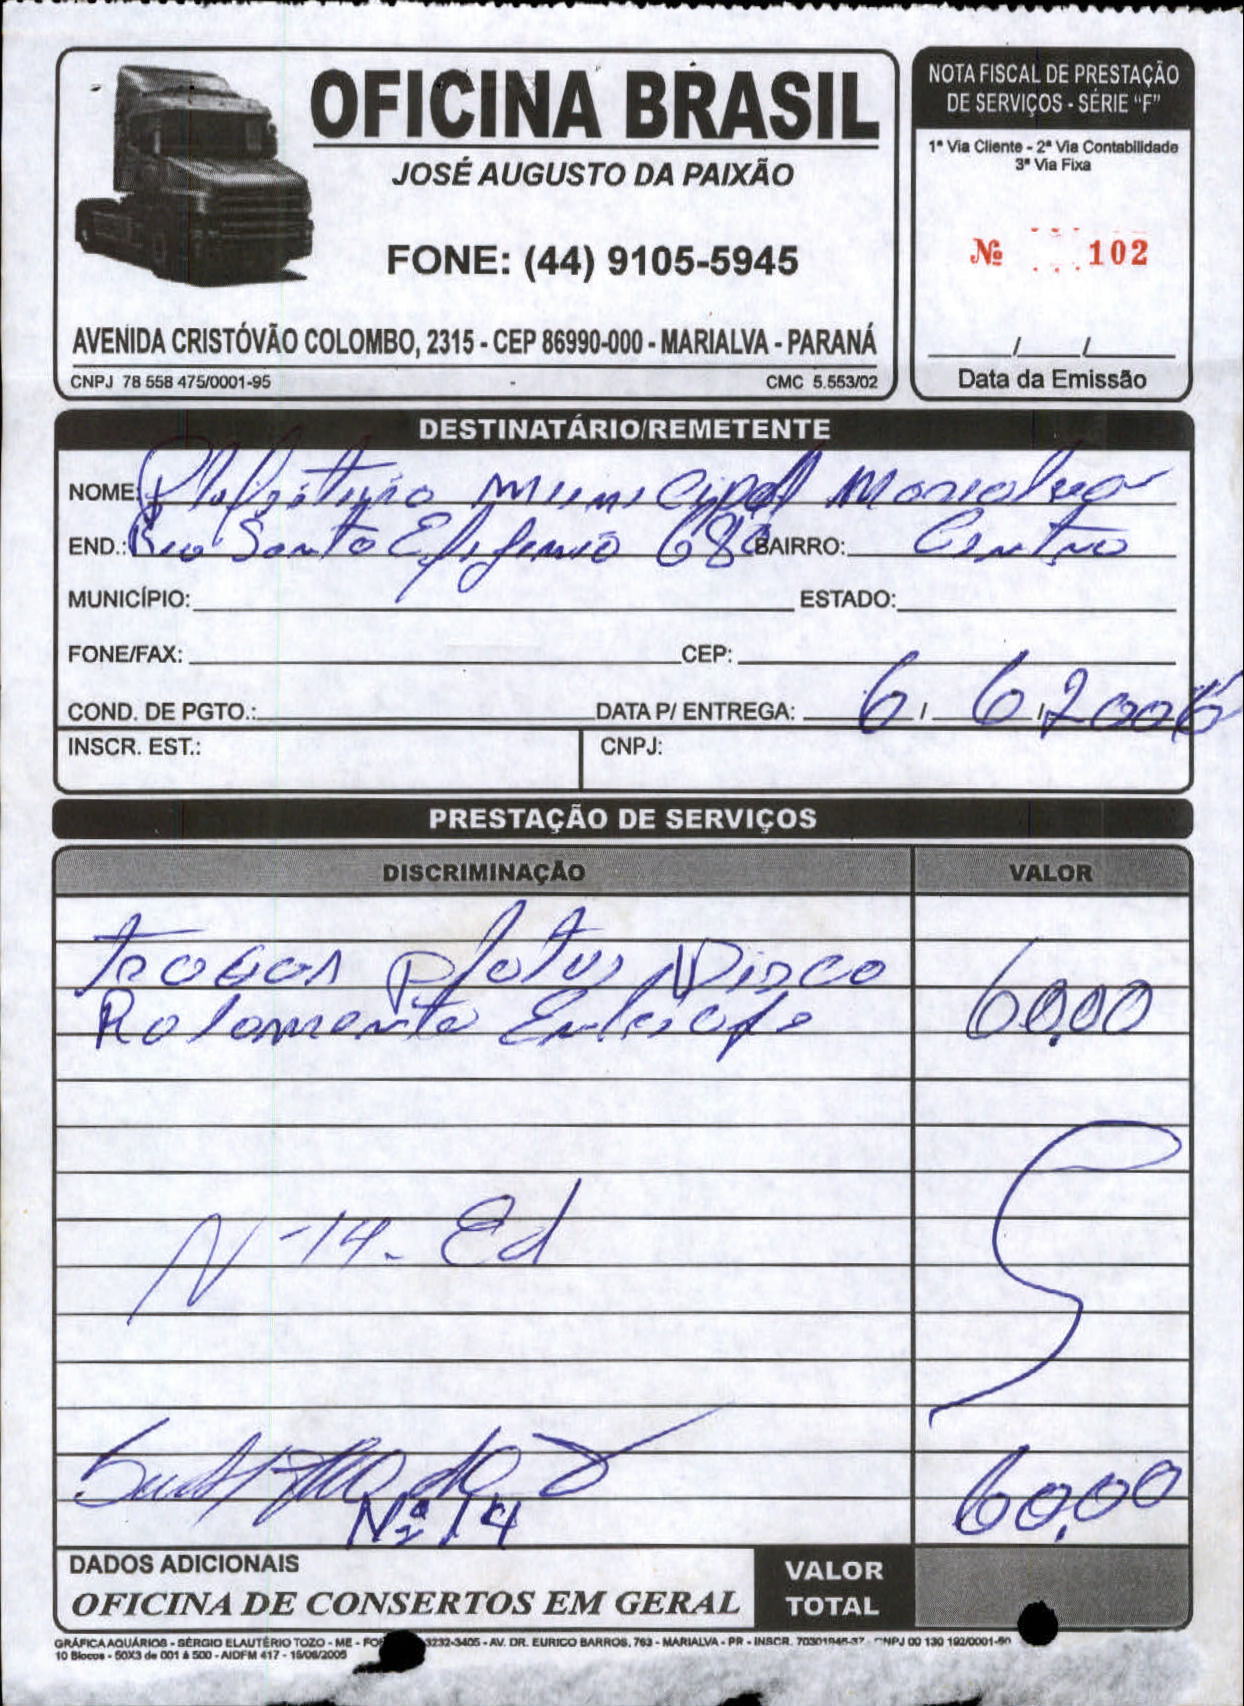 OFICINA BRASIL
JOSÉ AUGUSTO DA PAIXÃO
FONE: (44) 9105-5945
AVENIDA CRISTÓVÃO COLOMBO, 2315 - CEP 86990-000 - MARIALVA - PARANÁ
CNPJ 78 558 475/0001-95 CMC 5.553/02
NOTA FISCAL DE PRESTAÇÃO
DE SERVIÇOS - SÉRIE “F”
1ª Via Cliente - 2ª Via Contabilidade
3ª Via Fixa
Nº 102
__/__/__
Data da Emissão
DESTINATÁRIO/REMETENTE
NOME: Municipal Marialva
END.: Santa Efigenia 680 BAIRRO: Centro
MUNICÍPIO: ESTADO:
FONE/FAX: CEP:
COND. DE PGTO.: DATA P/ ENTREGA: 6/6/2006
INSCR. EST.: CNPJ:
PRESTAÇÃO DE SERVIÇOS
DISCRIMINAÇÃO VALOR
Platus Disco
Rolamento 60,00
N-14- Ed
Nº 14 60,00
DADOS ADICIONAIS
OFICINA DE CONSERTOS EM GERAL
VALOR
TOTAL
GRÁFICA AQUÁRIOS - SÉRGIO ELAUTÉRIO TOZO - ME - 3232-3405 - AV. DR. EURICO BARROS, 763 - MARIALVA - PR - INSCR. 70301946-37 - CNPJ 00 130 192/0001-
10 Blocos - 50X3 de 001 à 500 - AIDFM 417 - 15/06/2005